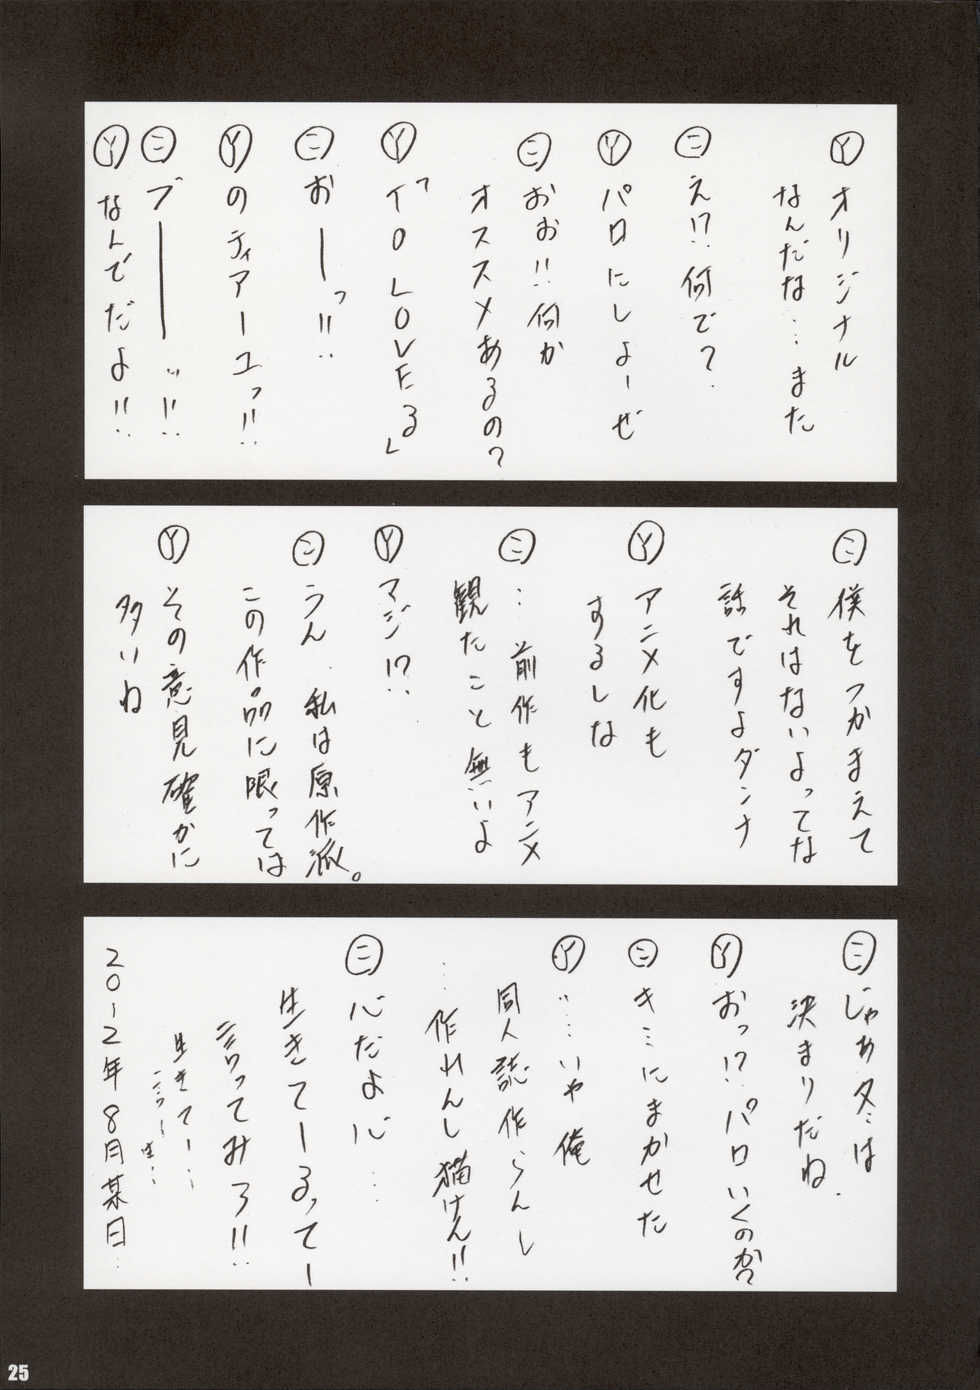 Ⓨ オリジナル
なんだな…また
㊁ え!?何で?
Ⓨ パロにしよーぜ
㊁ おお!!何か
オススメあるの?
Ⓨ 「TO LOVEる」
㊁ おーーっ!!
Ⓨ のティアーユっ!!
㊁ ブーーーッ!!
Ⓨ なんでだよ!!
㊁ 僕をつかまえて
それはないよってな
話ですよダンナ
Ⓨ アニメ化も
するしな
㊁ …前作もアニメ
観たこと無いよ
Ⓨ マジ!?
㊁ うん、私は原作派。
この作品に限っては
Ⓨ その意見確かに
多いね
㊁ じゃあ冬は
決まりだね.
Ⓨ おっ!?パロいくのか?
㊁ キミにまかせた
Ⓨ …いや俺
同人誌作らんし
…作れんし描けん!!
㊁ 心だよ心…
生きてーるってー
言ってみろ!!
生きてー…
2012年8月某日…
25